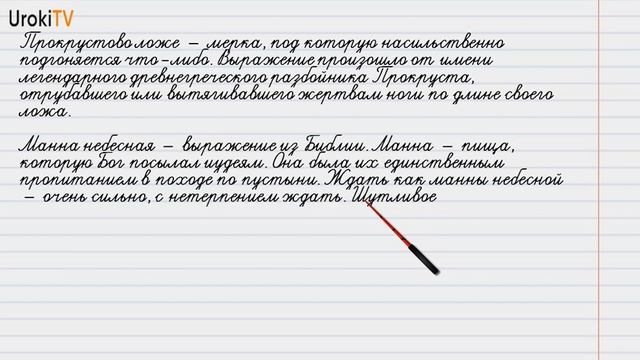 UrokiTV
Прокрустово ложе – мерка, под которую насильственно
подгоняется что-либо. Выражение произошло от имени
легендарного древнегреческого разбойника Прокруста,
отрубавшего или вытягивавшего жертвам ноги по длине своего
ложа.
Манна небесная – выражение из Библии. Манна – пища,
которую Бог посылал иудеям. Она была их единственным
пропитанием в походе по пустыни. Ждать как манны небесной
– очень сильно, с нетерпением ждать. Шутливое